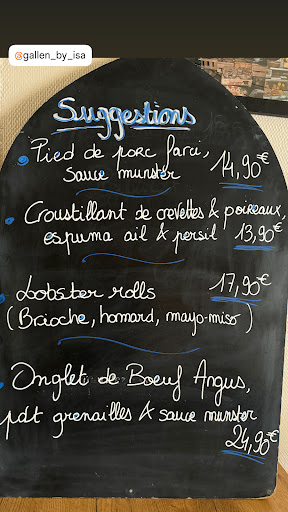 @gallen_by_isa
Suggestions
• Pied de porc farci,
sauce munster 14,90€
• Croustillant de crevettes & poireaux,
espuma ail & persil 13,90€
• Lobster rolls 17,90€
(Brioche, homard, mayo-miso)
• Onglet de Boeuf Angus,
pdt grenailles & sauce munster
24,90€